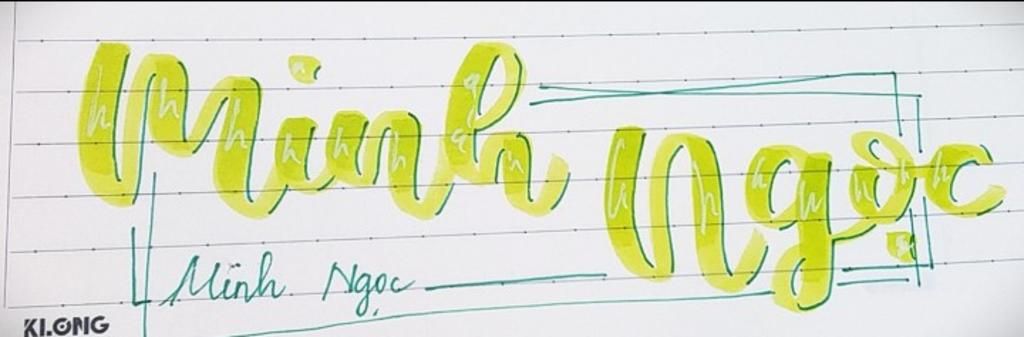 Minh Ngọc
Minh Ngọc
KLONG